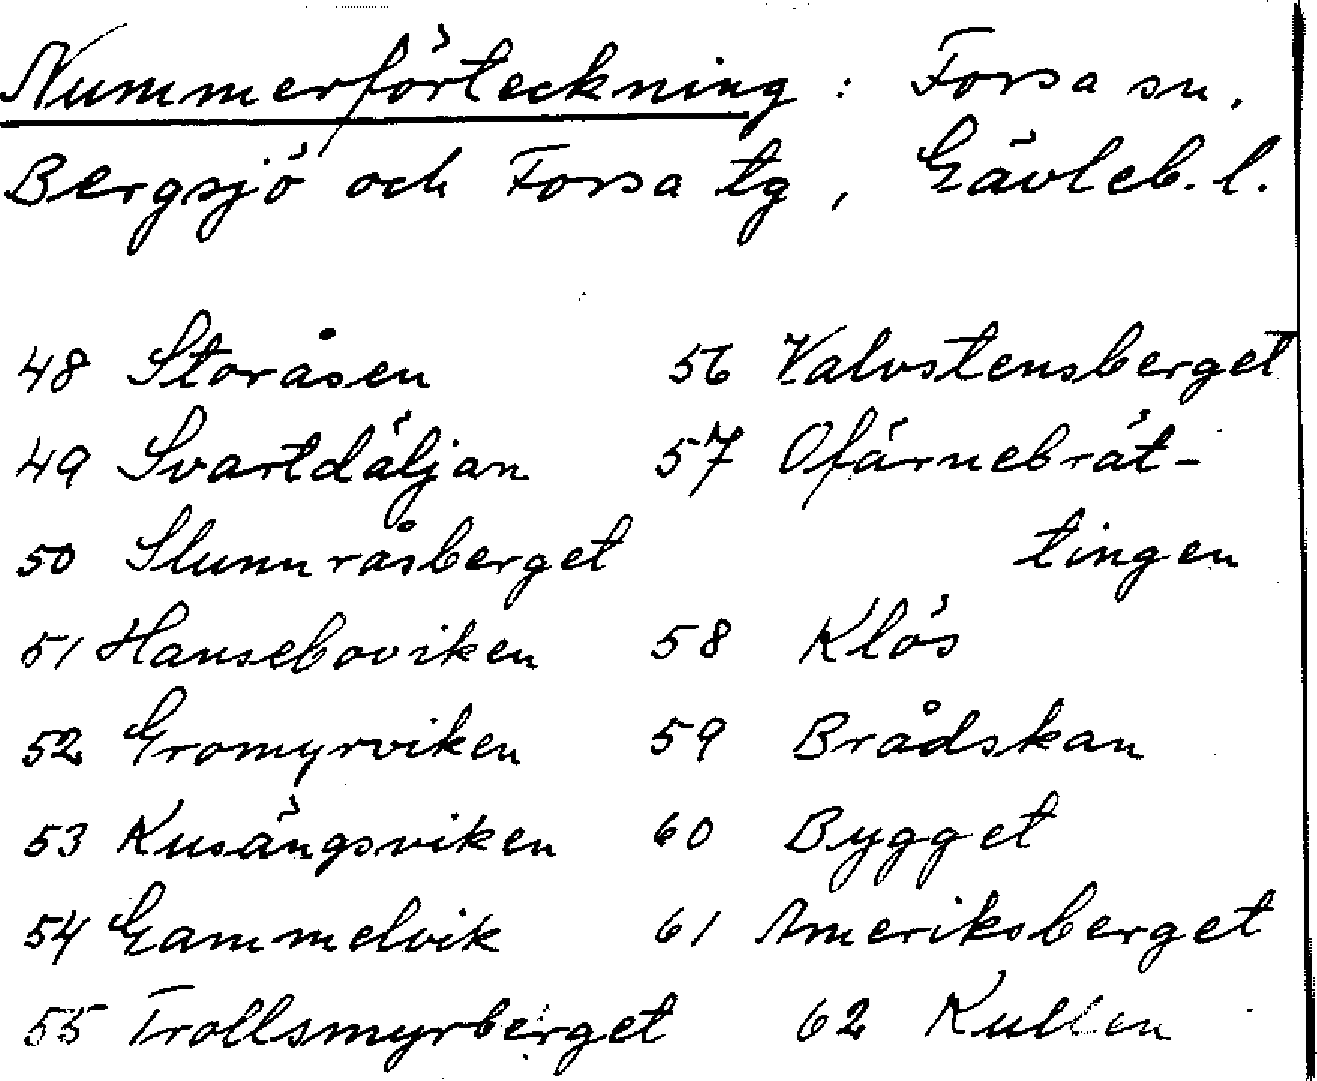 Nummerförteckning : Forsa sn.
Bergsjö och Forsa tg, Gävleb. l.
48 Storåsen
49 Svartdäljan
50 Slunnråsberget
51 Hanseboviken
52 Gromyrviken
53 Kusängsviken
54 Gammelvik
55 Trollsmyrberget
56 Valvstensberget
57 Ofärnebrät-
tingen
58 Klös
59 Brådskan
60 Bygget
61 Ameriksberget
62 Kullen